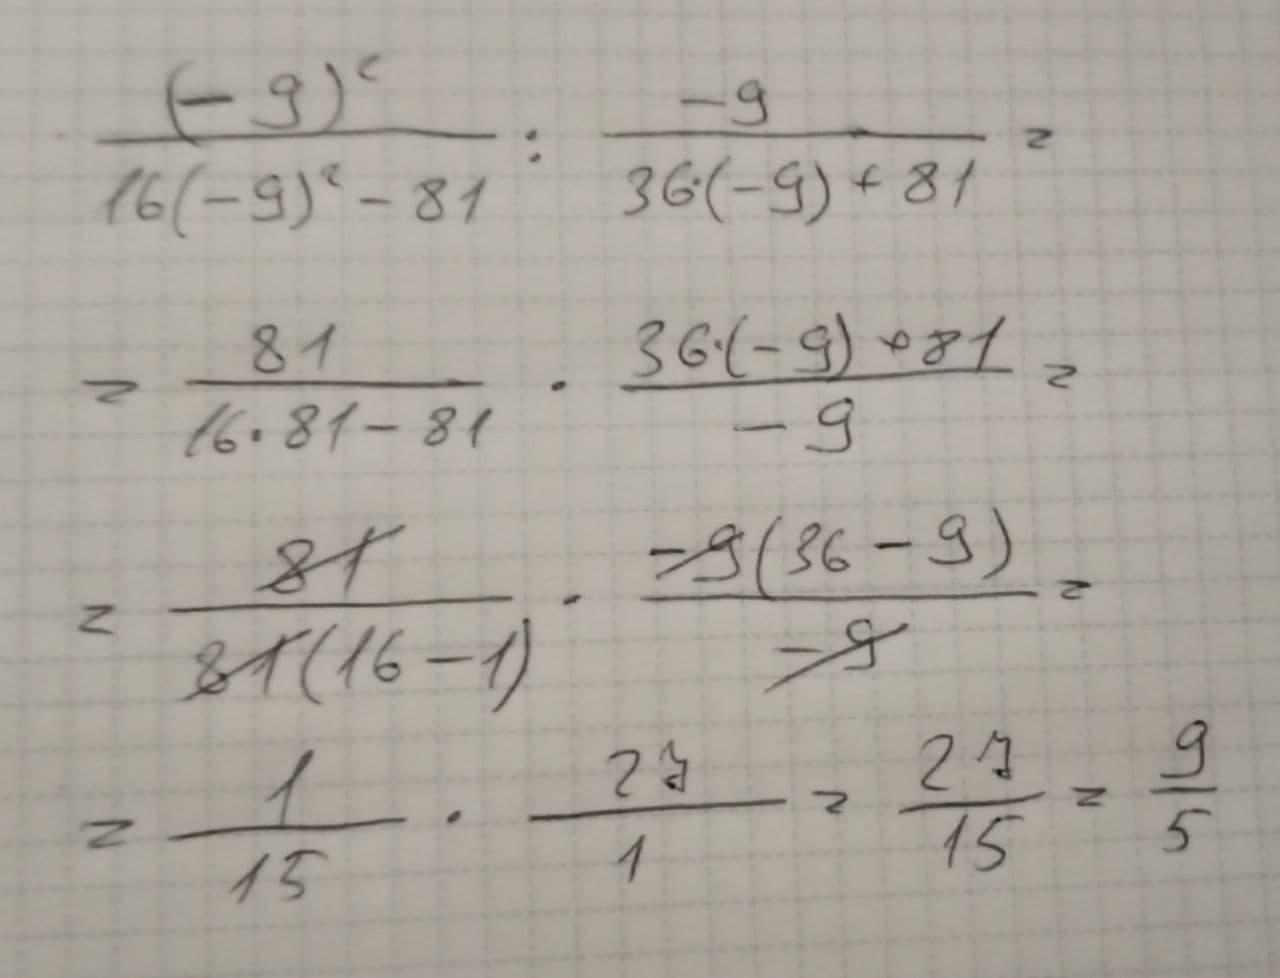 (-9)² / (16(-9)² - 81) : -9 / (36·(-9) + 81) =
= 81 / (16·81 - 81) · (36·(-9) + 81) / -9 =
= 81 / (81(16 - 1)) · -9(36 - 9) / -9 =
= 1/15 · 27/1 = 27/15 = 9/5